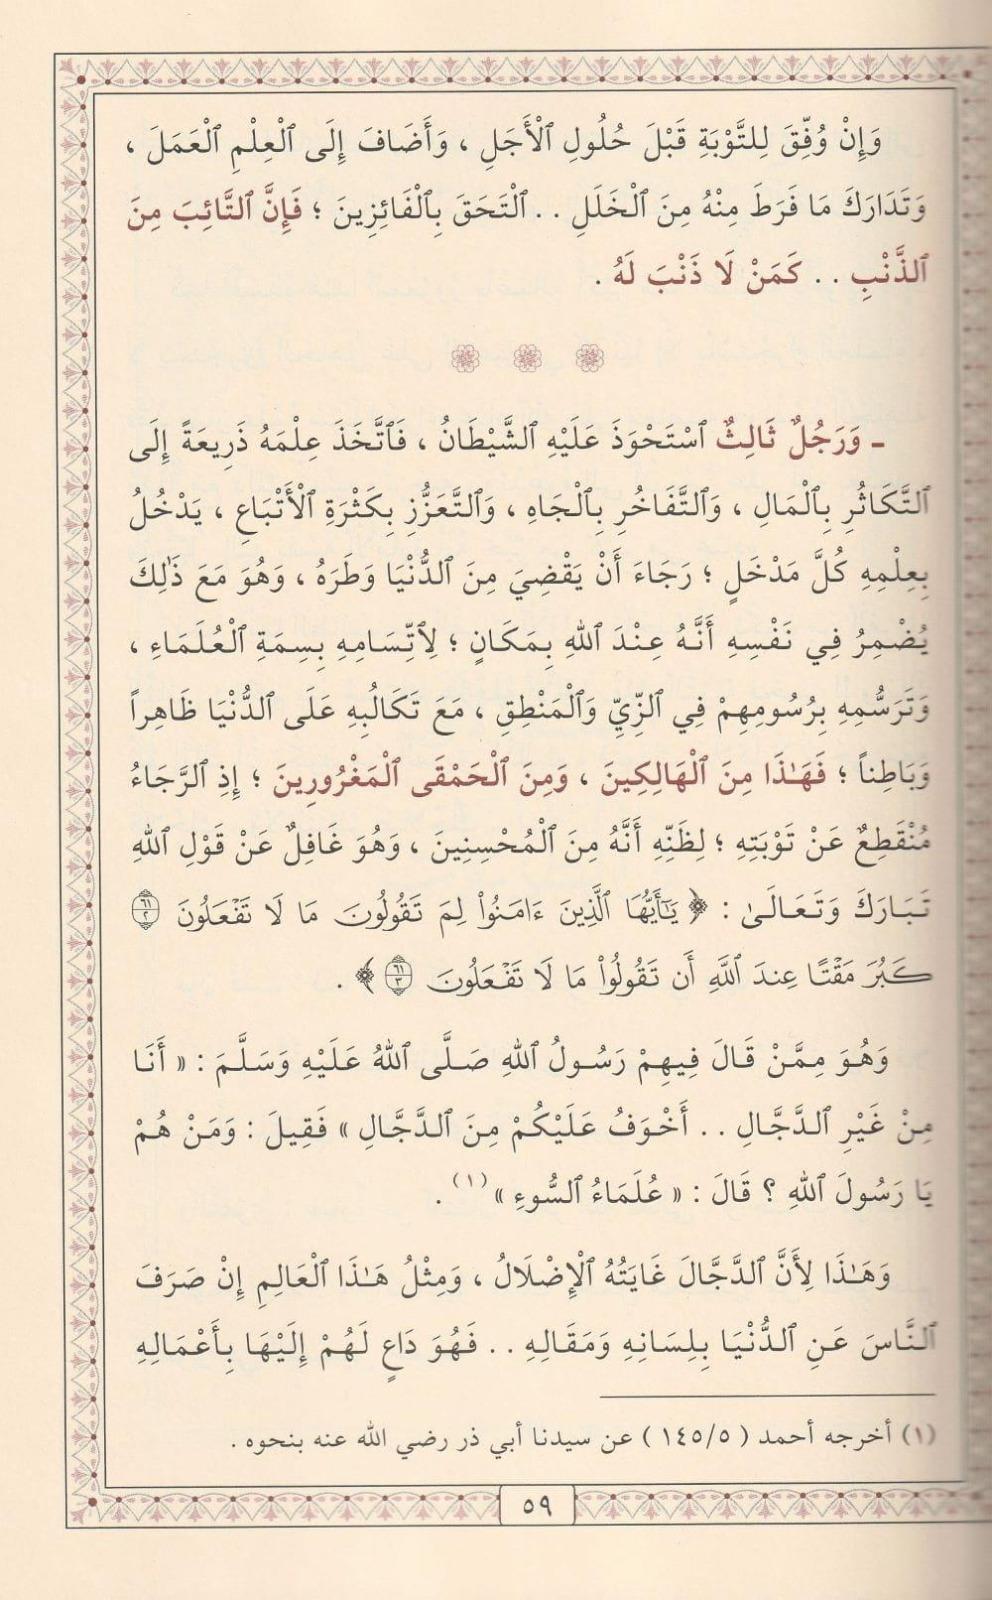 وَإِنْ وُفِّقَ لِلتَّوْبَةِ قَبْلَ حُلُولِ ٱلْأَجَلِ ، وَأَضَافَ إِلَى ٱلْعِلْمِ ٱلْعَمَلَ ،
وَتَدَارَكَ مَا فَرَطَ مِنْهُ مِنَ ٱلْخَلَلِ . . ٱلْتَحَقَ بِٱلْفَائِزِينَ ؛ فَإِنَّ ٱلتَّائِبَ مِنَ
ٱلذَّنْبِ . . كَمَنْ لَا ذَنْبَ لَهُ .
ـ وَرَجُلٌ ثَالِثٌ ٱسْتَحْوَذَ عَلَيْهِ ٱلشَّيْطَانُ ، فَٱتَّخَذَ عِلْمَهُ ذَرِيعَةً إِلَى
ٱلتَّكَاثُرِ بِٱلْمَالِ ، وَٱلتَّفَاخُرِ بِٱلْجَاهِ ، وَٱلتَّعَزُّزِ بِكَثْرَةِ ٱلْأَتْبَاعِ ، يَدْخُلُ
بِعِلْمِهِ كُلَّ مَدْخَلٍ ؛ رَجَاءَ أَنْ يَقْضِيَ مِنَ ٱلدُّنْيَا وَطَرَهُ ، وَهُوَ مَعَ ذَٰلِكَ
يُضْمِرُ فِي نَفْسِهِ أَنَّهُ عِنْدَ ٱللهِ بِمَكَانٍ ؛ لِٱتِّسَامِهِ بِسِمَةِ ٱلْعُلَمَاءِ ،
وَتَرَسُّمِهِ بِرُسُومِهِمْ فِي ٱلزِّيِّ وَٱلْمَنْطِقِ ، مَعَ تَكَالُبِهِ عَلَى ٱلدُّنْيَا ظَاهِراً
وَبَاطِناً ؛ فَهَـٰذَا مِنَ ٱلْهَالِكِينَ ، وَمِنَ ٱلْحَمْقَى ٱلْمَغْرُورِينَ ؛ إِذِ ٱلرَّجَاءُ
مُنْقَطِعٌ عَنْ تَوْبَتِهِ ؛ لِظَنِّهِ أَنَّهُ مِنَ ٱلْمُحْسِنِينَ ، وَهُوَ غَافِلٌ عَنْ قَوْلِ ٱللهِ
تَبَارَكَ وَتَعَالَىٰ : ﴿ يَـٰٓأَيُّهَا ٱلَّذِينَ ءَامَنُواْ لِمَ تَقُولُونَ مَا لَا تَفْعَلُونَ ٦١ ٢
كَبُرَ مَقْتًا عِندَ ٱللَّهِ أَن تَقُولُواْ مَا لَا تَفْعَلُونَ ٦١ ٣ ﴾ .
وَهُوَ مِمَّنْ قَالَ فِيهِمْ رَسُولُ ٱللهِ صَلَّى ٱللهُ عَلَيْهِ وَسَلَّمَ : « أَنَا
مِنْ غَيْرِ ٱلدَّجَّالِ . . أَخْوَفُ عَلَيْكُمْ مِنَ ٱلدَّجَّالِ » فَقِيلَ : وَمَنْ هُمْ
يَا رَسُولَ ٱللهِ ؟ قَالَ : « عُلَمَاءُ ٱلسُّوءِ » (١) .
وَهَـٰذَا لِأَنَّ ٱلدَّجَّالَ غَايَتُهُ ٱلْإِضْلَالُ ، وَمِثْلُ هَـٰذَا ٱلْعَالِمِ إِنْ صَرَفَ
ٱلنَّاسَ عَنِ ٱلدُّنْيَا بِلِسَانِهِ وَمَقَالِهِ . . فَهُوَ دَاعٍ لَهُمْ إِلَيْهَا بِأَعْمَالِهِ
(١) أخرجه أحمد ( ١٤٥/٥ ) عن سيدنا أبي ذر رضي الله عنه بنحوه .
٥٩